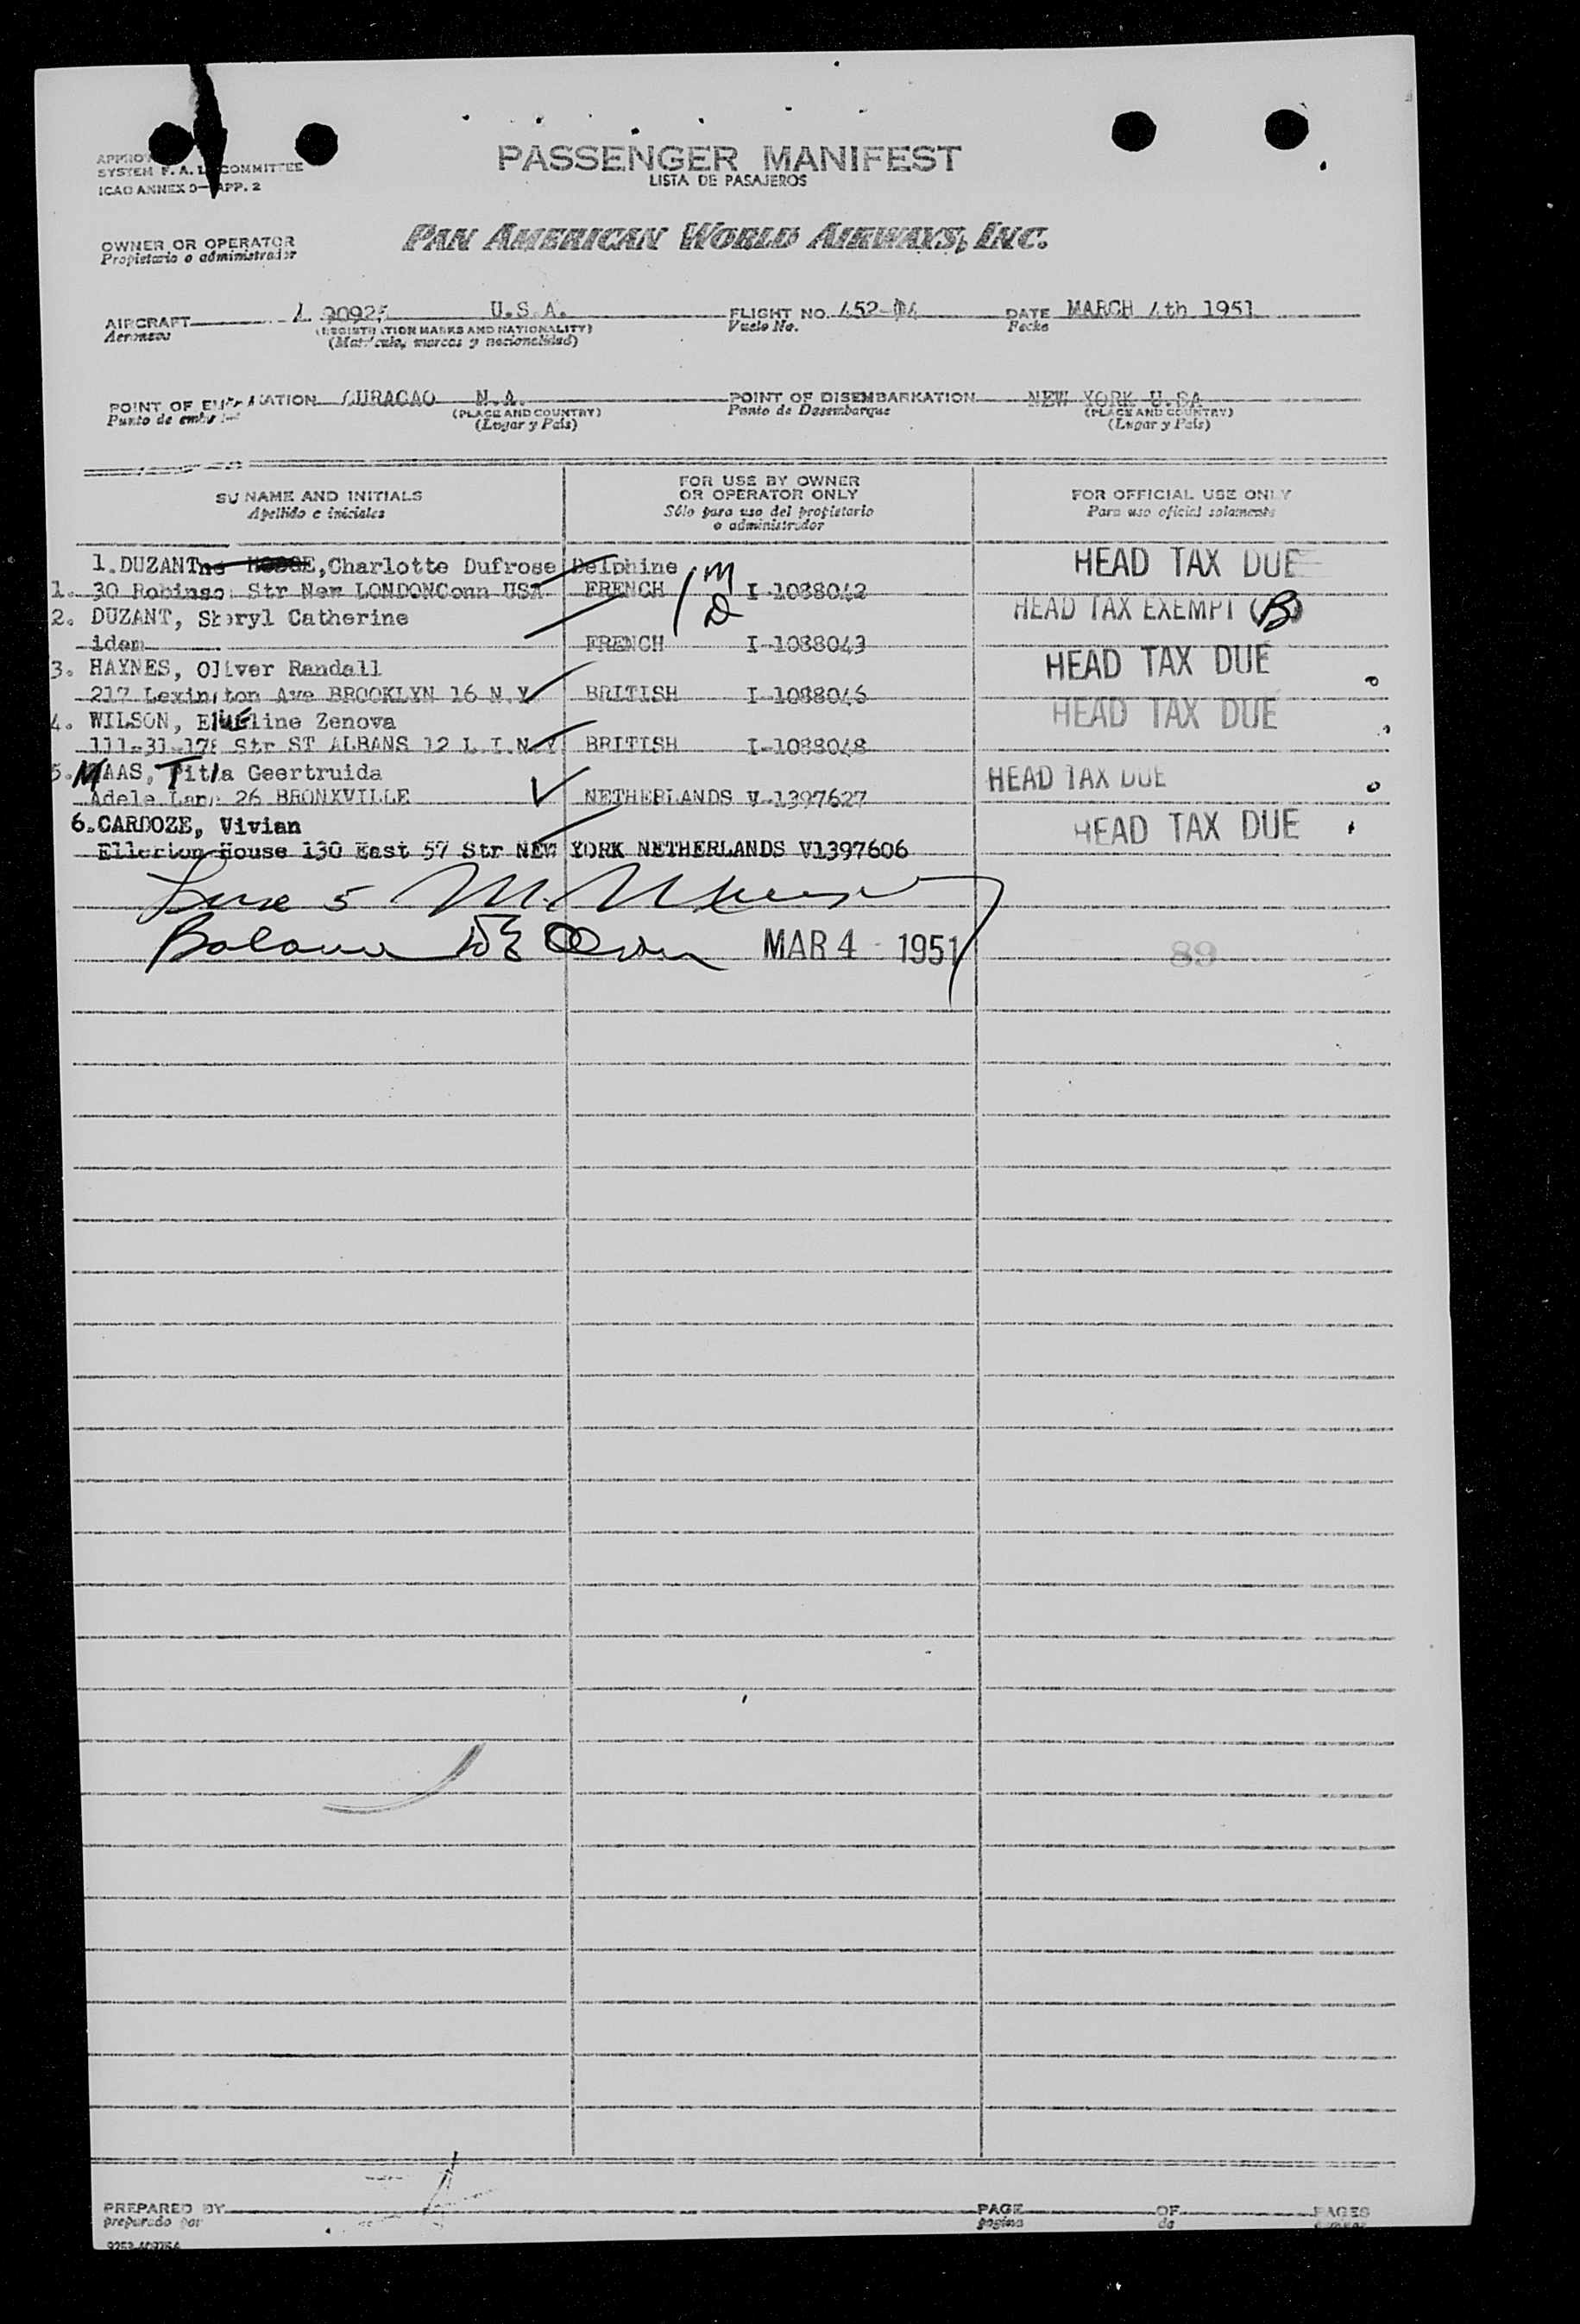 SYSTEM F. A. L. COMMITTEE
ICAO ANNEX 9—APP. 2
PASSENGER MANIFEST
LISTA DE PASAJEROS
OWNER OR OPERATOR
Propietario o administrador
PAN AMERICAN WORLD AIRWAYS, INC.
AIRCRAFT U.S.A. FLIGHT NO. 452- DATE MARCH 4th 1951
Aeronave (REGISTRATION MARKS AND NATIONALITY) Vuelo No. Fecha
(Matrícula, marcas y nacionalidad)
POINT OF EMBARKATION CURACAO N.A. POINT OF DISEMBARKATION NEW YORK U.SA
Punto de (PLACE AND COUNTRY) Punto de Desembarque (PLACE AND COUNTRY)
(Lugar y País) (Lugar y País)
SURNAME AND INITIALS FOR USE BY OWNER OR OPERATOR ONLY FOR OFFICIAL USE ONLY
Apellido e iniciales Sólo para uso del propietario o administrador Para uso oficial solamente
1.DUZANT ,Charlotte Dufrose Delphine HEAD TAX DUE
1. 30 Robinson Str New LONDONConn USA FRENCH I-1088042
2. DUZANT, Sheryl Catherine HEAD TAX EXEMPT (B)
idem FRENCH I-1088043
3. HAYNES, Oliver Randall HEAD TAX DUE
217 Lexington Ave BROOKLYN 16 N.Y BRITISH I-1088046
4. WILSON, Zenova HEAD TAX DUE
111-31-178 Str ST ALBANS 12 L.I.N.Y. BRITISH I-1088048
5. MAAS, Geertruida HEAD TAX DUE
Adele Lane 26 BRONXVILLE NETHERLANDS V-1397627
6.CARDOZE, Vivian HEAD TAX DUE
Ellerton House 130 East 57 Str NEW YORK NETHERLANDS V1397606
MAR 4 - 1951
89
PREPARED BY PAGE OF PAGES
preparado por pagina de